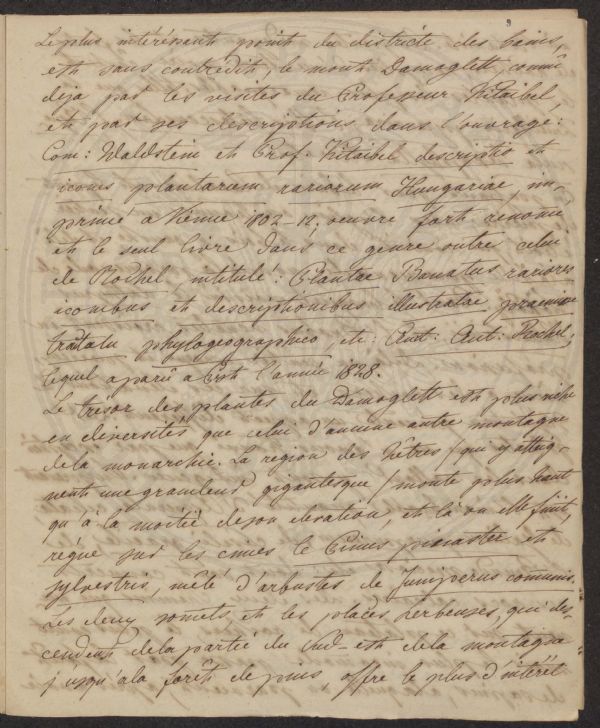 9
Le plus intéressant point du districte des bains,
est sans contredit, le mont Damoglett, connû
deja par les visites du Professeur Kitaibel,
et par ses descriptions dans l'ouvrage:
Com: Waldstein et Prof. Kitaibel descriptio et
icones plantarum rariorum Hungariae, im-
primé a Vienne 1802-12, oeuvre fort renomé
et le seul livre dans ce genre outre celui
de Rochel, intitulé: Plantae Banatus rariores
iconibus et descriptionibus illustratae praemisso
tratatu phylogeographico, etc: Aut: Ant: Rochel,
lequel a parû a Pest l'année 1828.
Le trésor des plantes du Damoglett est plus riche
en diversités que celui d'aucune autre montagne
de la monarchie. La region des hêtres /qui y atteig-
nent une grandeur gigantesque/ monte plus haut
qu'à la moitié de son elevation, et là où elle finit,
régne sur les cimes le Pinus pinaster et
sylvestris, mêlé d'arbustes de Juniperus communis.
Les deux somets, et les places herbeuses, qui des-
cendent de la partie du Sud-est de la montagne
jusqu'a la forêt de pins, offre le plus d'intérêt